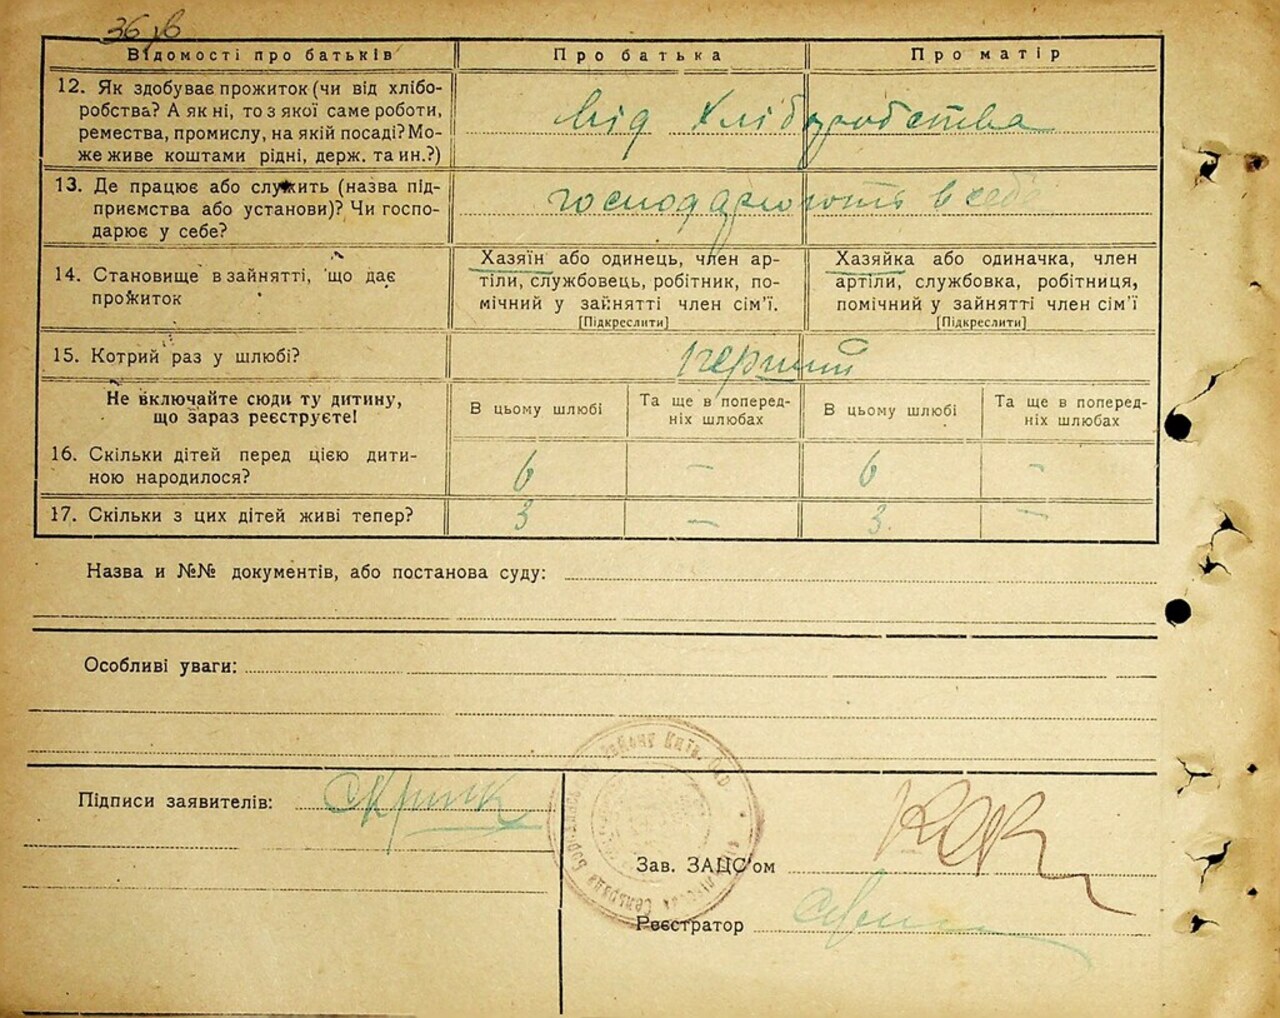 36
Відомості про батьків
Про батька
Про матір
12. Як здобуває прожиток (чи від хлібо-
робства? А як ні, то з якої саме роботи,
ремества, промислу, на якій посаді? Мо-
же живе коштами рідні, держ. та ин.?)
від хліборобства
13. Де працює або служить (назва під-
приємства або установи)? Чи госпо-
дарює у себе?
господарюють в себе
14. Становище в зайнятті, що дає
прожиток
Хазяїн або одинець, член ар-
тіли, службовець, робітник, по-
мічний у зайнятті член сім'ї.
[Підкреслити]
Хазяйка або одиначка, член
артіли, службовка, робітниця,
помічний у зайнятті член сім'ї
[Підкреслити]
15. Котрий раз у шлюбі?
перший
Не включайте сюди ту дитину,
що зараз реєструєте!
В цьому шлюбі
Та ще в поперед-
ніх шлюбах
В цьому шлюбі
Та ще в поперед-
ніх шлюбах
16. Скільки дітей перед цією дити-
ною народилося?
6 — 6 -
17. Скільки з цих дітей живі тепер?
3 — 3. —
Назва и №№ документів, або постанова суду:
Особливі уваги:
Підписи заявителів:
Району Київ.
Сельрада
Зав. ЗАЦС'ом
Реєстратор